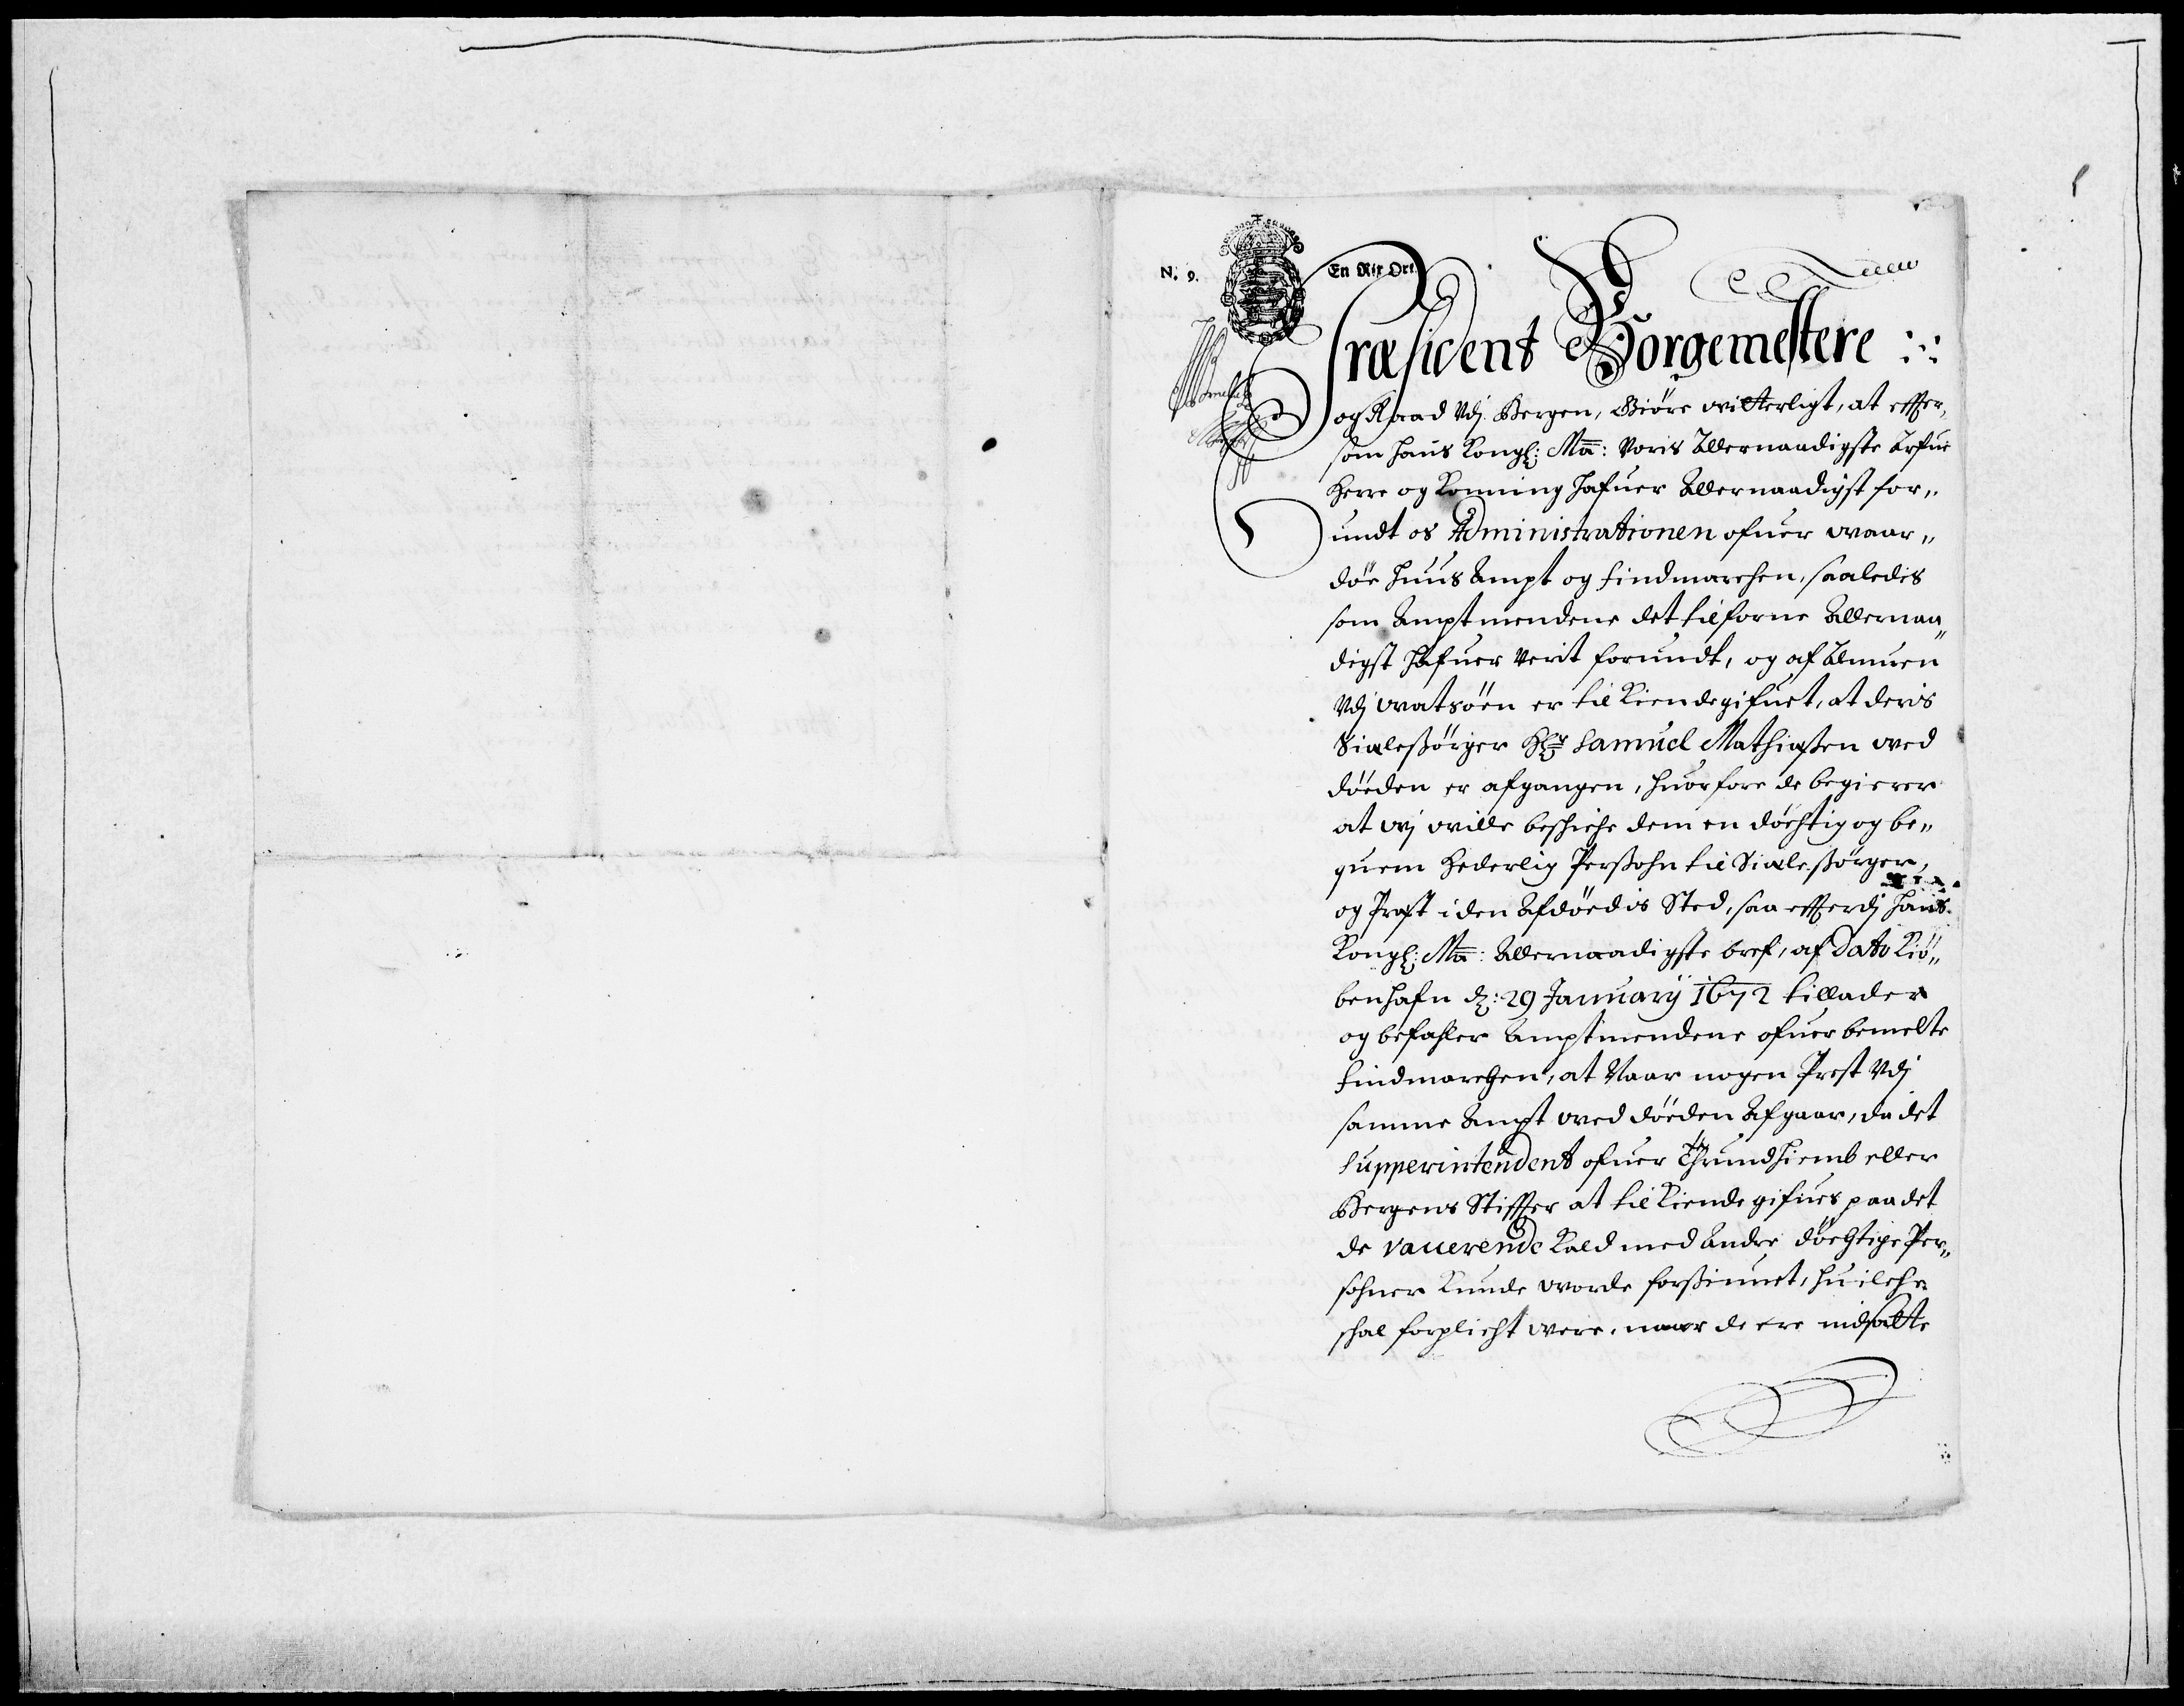 N. 9.
En Rix Ort.
Præsident Borgemestere
og Raad Udj Bergen, Giöre witterligt, at effter,
som Hans Kongl: Ma: Voris Allernaadigste Arfue
Herre og Konning hafuer Allernaadigst for„
undt os Administrationen ofuer waar„
döe huus Ampt og Findmarchen, saaledis
som Amptmendene det tilforne Allernaa„
digst hafuer Verit forundt, og af Almuen
Udj watsöen er til Kiende gifuet, at deris
Sialesörger Hr Samuel Mathiassen wed
döeden er afgangen, huorfore de begierer
at wj wille beschiche dem en döchtig og be„
quem Hederlig Persohn til Sialesörger,
og Præst i den Afdöedis Sted, saa efterdj Hans
Kongl: Ma: Allernaadigste bref, af Dato Kiö„
benhafn d: 29 January 1672 tillader
og befahler Amptmendene ofuer bemelte
Findmarchen, at Naar nogen Prest Udj
samme Ampt wed döeden Afgaar, da det
Supperintendent ofuer Thrundhiemb eller
Bergens Stiffter at til Kiende gifues paa det
de vacerende Kald med Andre döchtige Per„
sohner Kunde worde forsiunet, huilche
schal forplicht were, naar de ere indsatte